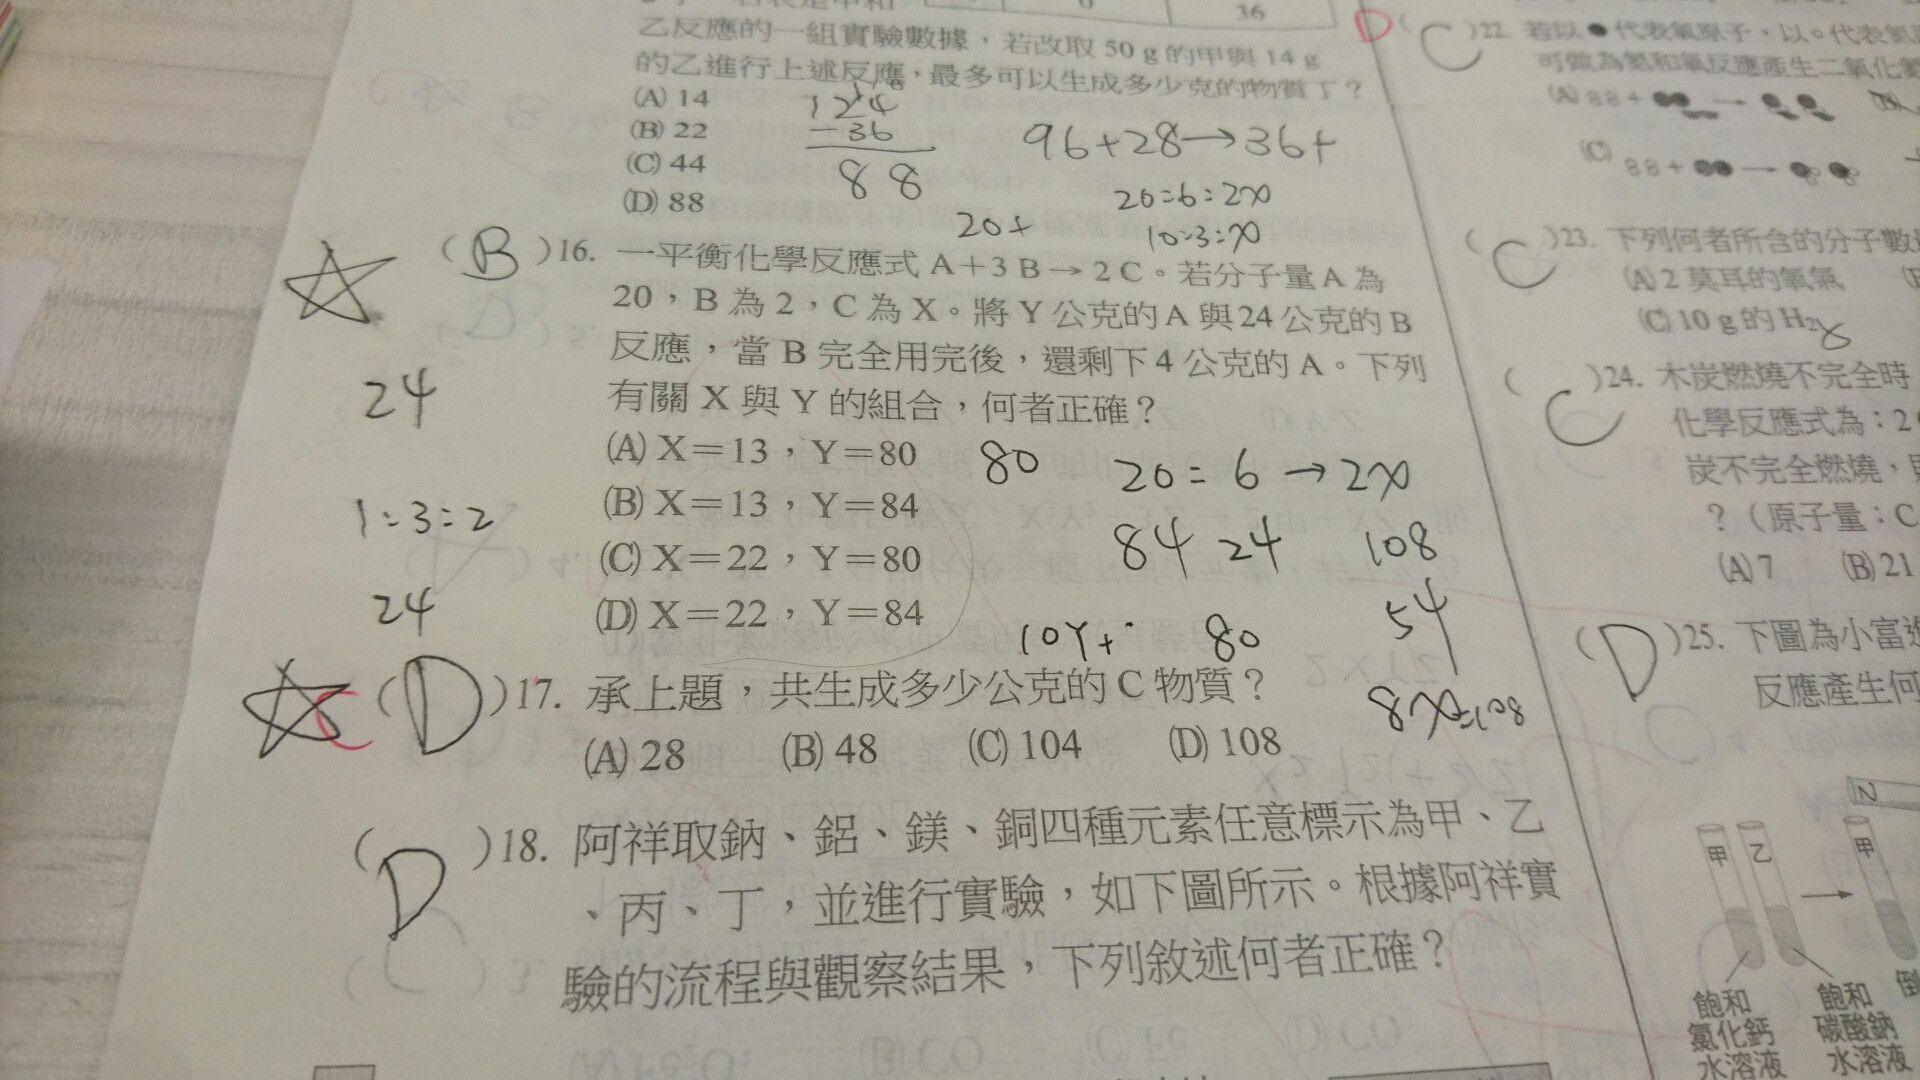 36
乙反應的一組實驗數據，若改取 50 g 的甲與 14 g
的乙進行上述反應，最多可以生成多少克的物質丁？
(A) 14
(B) 22
(C) 44
(D) 88
124
-36
88
96+28→36+
20:6=2x
10:3=x
20+
(B)16. 一平衡化學反應式 A＋3 B→2 C。若分子量 A 為
20，B 為 2，C 為 X。將 Y 公克的 A 與 24 公克的 B
反應，當 B 完全用完後，還剩下 4 公克的 A。下列
有關 X 與 Y 的組合，何者正確？
(A) X＝13，Y＝80
(B) X＝13，Y＝84
(C) X＝22，Y＝80
(D) X＝22，Y＝84
24
1:3:2
24
80
20:6→2x
84 24 108
54
10Y+
80
(D)17. 承上題，共生成多少公克的 C 物質？
(A) 28 (B) 48 (C) 104 (D) 108
C
(D)18. 阿祥取鈉、鋁、鎂、銅四種元素任意標示為甲、乙
、丙、丁，並進行實驗，如下圖所示。根據阿祥實
驗的流程與觀察結果，下列敘述何者正確？
D
(C)22. 若以●代表氧原子，以○代表氮原
可做為氮和氧反應產生二氧化氮
(A)
(B)
(C)
(C)23. 下列何者所含的分子數
(A) 2 莫耳的氧氣
(C) 10 g 的 H₂
(C)24. 木炭燃燒不完全時
化學反應式為：2
炭不完全燃燒，
？（原子量：C
(A) 7 (B) 21
(D)25. 下圖為小富
反應產生何
甲 乙 甲
飽和
氯化鈣
水溶液
飽和
碳酸鈉
水溶液
倒